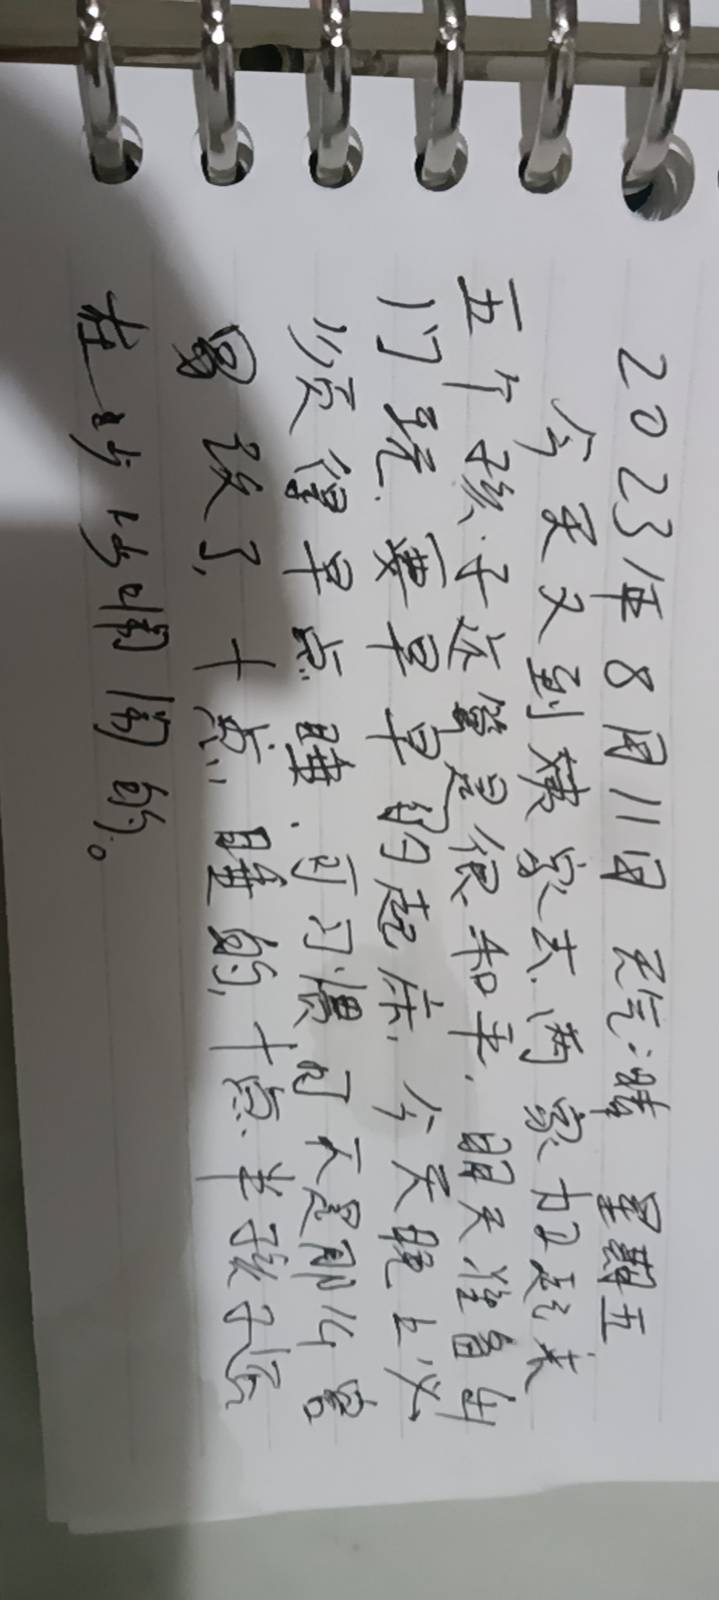 2023年8月11日 天气:晴 星期五
今天又到姨家去,两家加起来
五个孩子还算是很和平,明天准备出
门玩,要早早的起床,今天晚上必
须得早点睡,可习惯可不是那么容
易改了,十点睡的,十点半孩子还
在吵吵闹闹的。